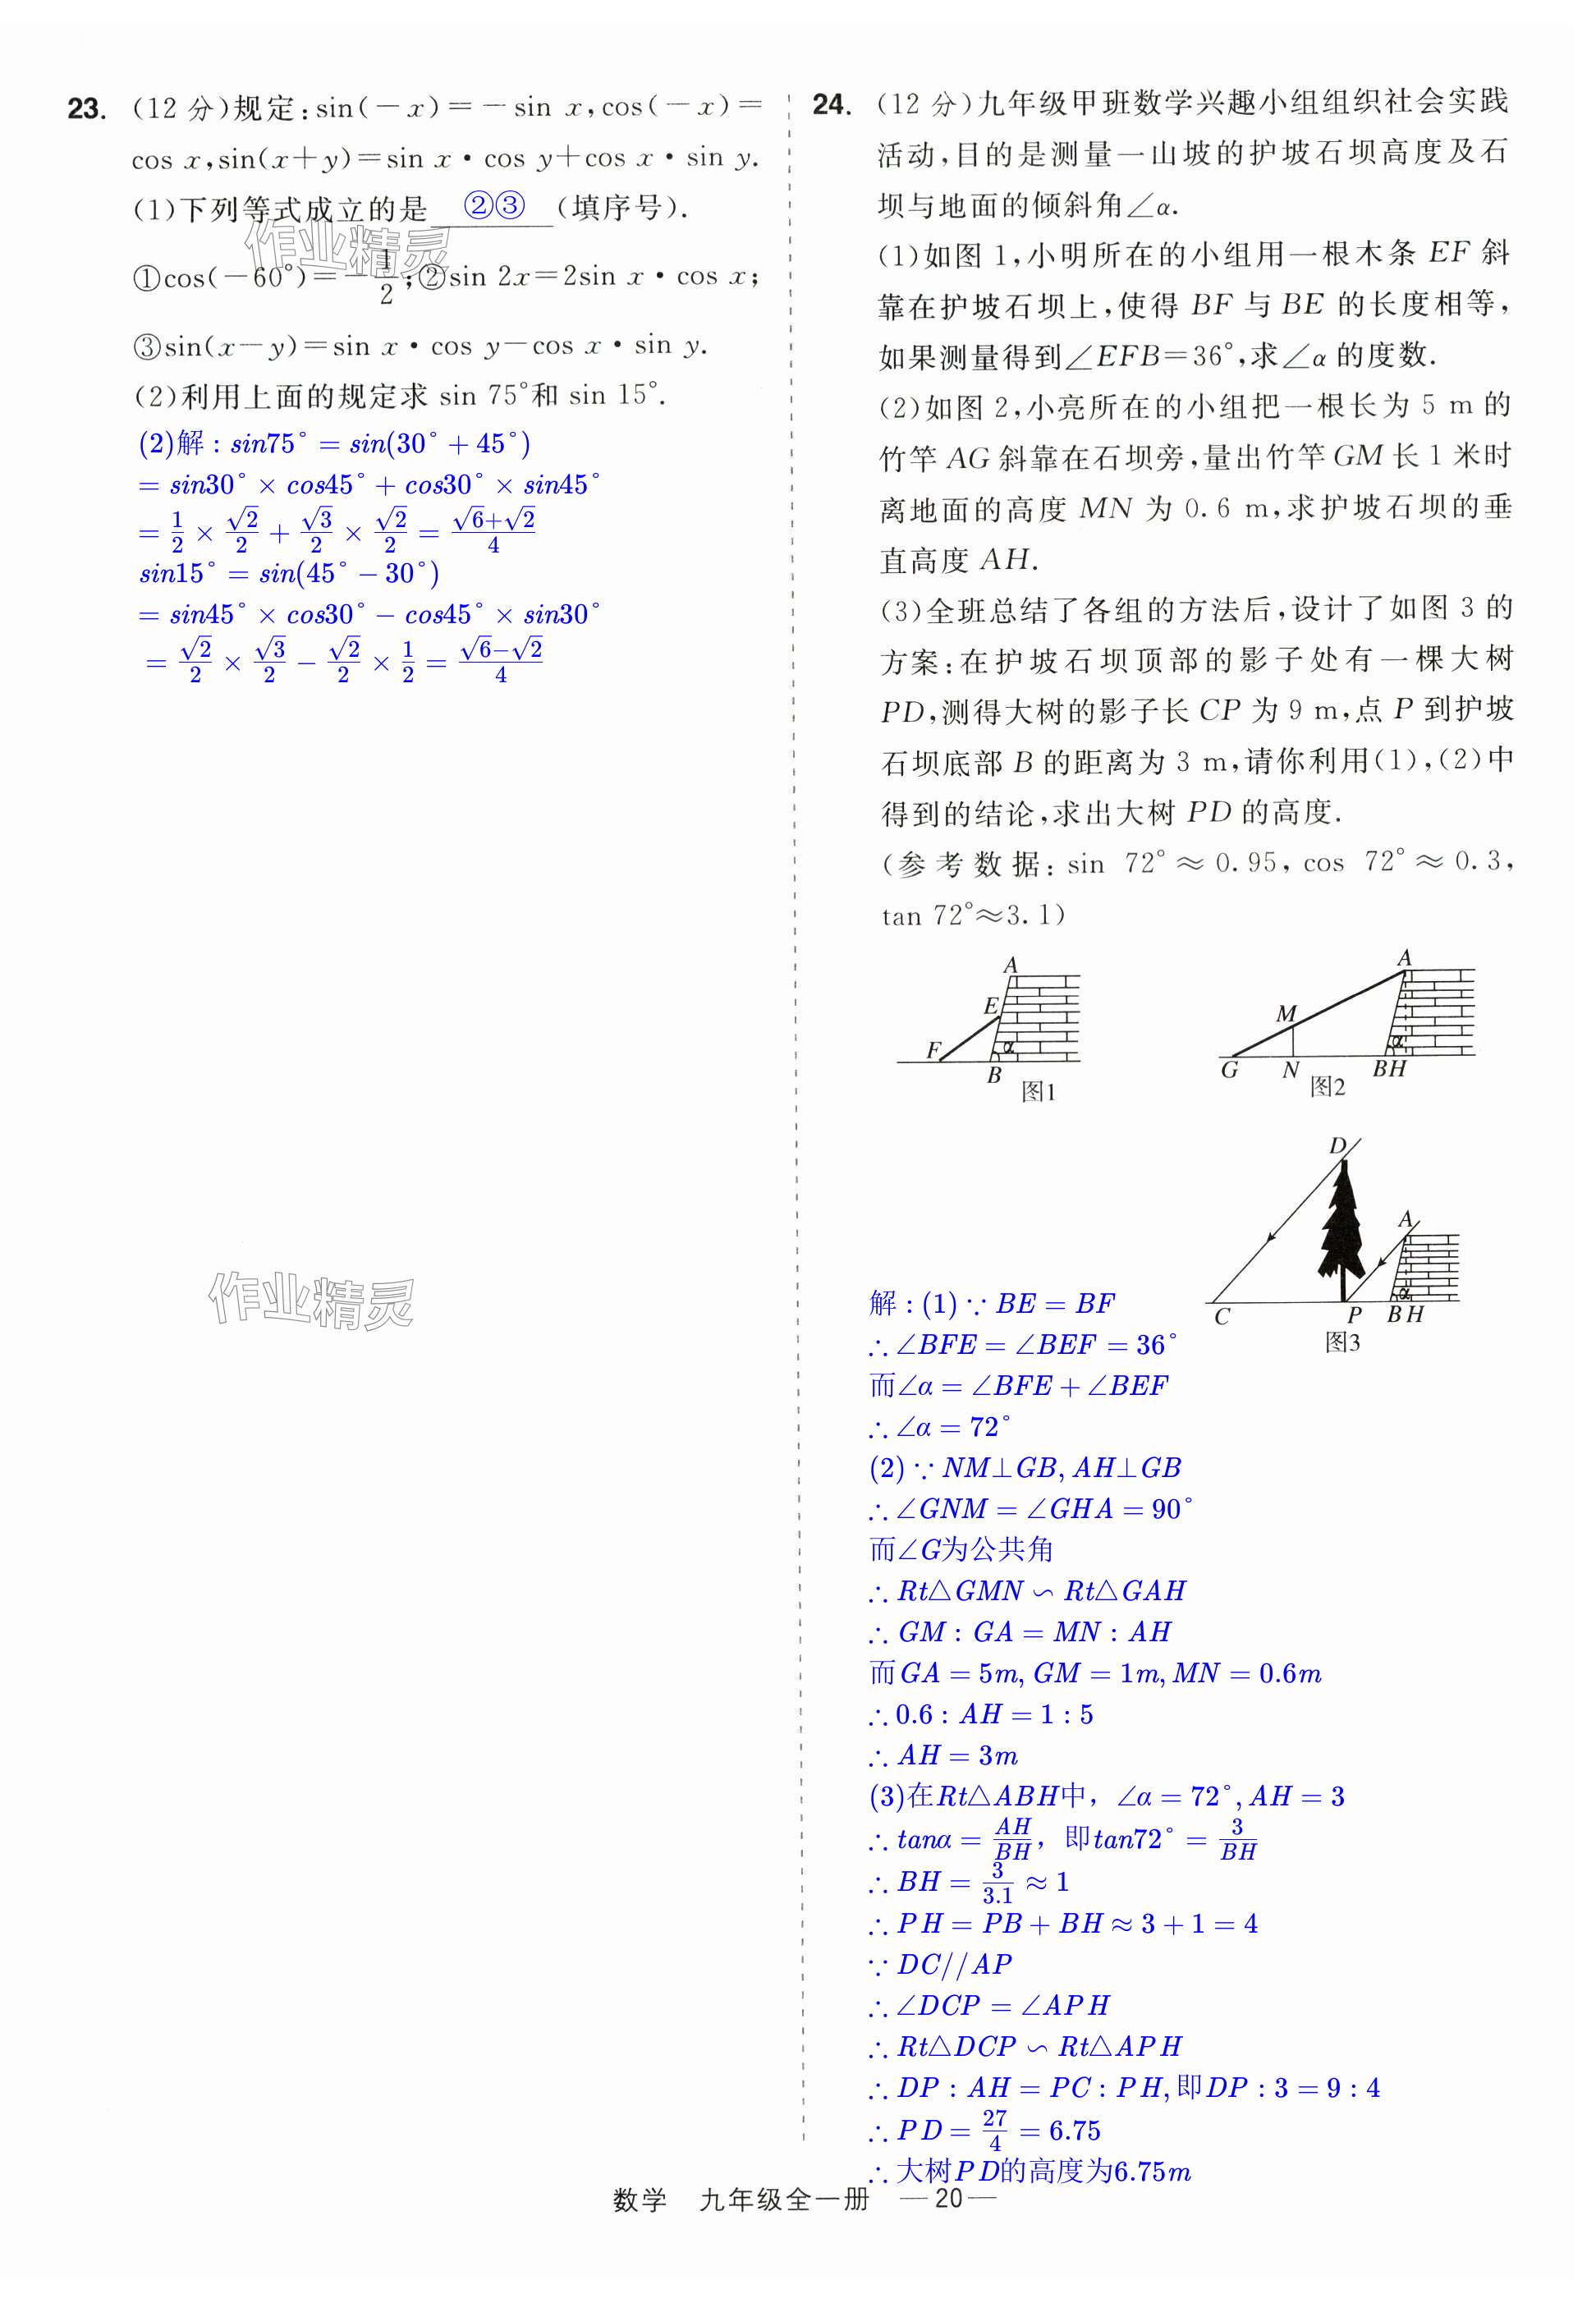 23. (12 分)规定:sin(－x)＝－sin x,cos(－x)＝
cos x,sin(x＋y)＝sin x·cos y＋cos x·sin y.
(1)下列等式成立的是 ②③ (填序号).
①cos(－60°)＝－1/2;②sin 2x＝2sin x·cos x;
③sin(x－y)＝sin x·cos y－cos x·sin y.
(2)利用上面的规定求 sin 75°和 sin 15°.
(2)解：sin75° = sin(30° + 45°)
= sin30° × cos45° + cos30° × sin45°
= 1/2 × √2/2 + √3/2 × √2/2 = (√6+√2)/4
sin15° = sin(45° − 30°)
= sin45° × cos30° − cos45° × sin30°
= √2/2 × √3/2 − √2/2 × 1/2 = (√6−√2)/4
作业精灵
作业精灵
24. (12 分)九年级甲班数学兴趣小组组织社会实践
活动,目的是测量一山坡的护坡石坝高度及石
坝与地面的倾斜角∠α.
(1)如图 1,小明所在的小组用一根木条 EF 斜
靠在护坡石坝上,使得 BF 与 BE 的长度相等,
如果测量得到∠EFB＝36°,求∠α 的度数.
(2)如图 2,小亮所在的小组把一根长为 5 m 的
竹竿 AG 斜靠在石坝旁,量出竹竿 GM 长 1 米时
离地面的高度 MN 为 0.6 m,求护坡石坝的垂
直高度 AH.
(3)全班总结了各组的方法后,设计了如图 3 的
方案:在护坡石坝顶部的影子处有一棵大树
PD,测得大树的影子长 CP 为 9 m,点 P 到护坡
石坝底部 B 的距离为 3 m,请你利用(1),(2)中
得到的结论,求出大树 PD 的高度.
(参考数据: sin 72°≈0.95, cos 72°≈0.3,
tan 72°≈3.1)
A
E
F
α
B
图1
A
M
α
G N BH
图2
D
A
α
C P B H
图3
解：(1) ∵ BE = BF
∴ ∠BFE = ∠BEF = 36°
而∠α = ∠BFE + ∠BEF
∴ ∠α = 72°
(2) ∵ NM⊥GB, AH⊥GB
∴ ∠GNM = ∠GHA = 90°
而∠G为公共角
∴ Rt△GMN ∽ Rt△GAH
∴ GM : GA = MN : AH
而GA = 5m, GM = 1m, MN = 0.6m
∴ 0.6 : AH = 1 : 5
∴ AH = 3m
(3)在Rt△ABH中，∠α = 72°, AH = 3
∴ tanα = AH/BH，即tan72° = 3/BH
∴ BH = 3/3.1 ≈ 1
∴ PH = PB + BH ≈ 3 + 1 = 4
∵ DC//AP
∴ ∠DCP = ∠APH
∴ Rt△DCP ∽ Rt△APH
∴ DP : AH = PC : PH, 即DP : 3 = 9 : 4
∴ PD = 27/4 = 6.75
∴ 大树PD的高度为6.75m
数学 九年级全一册 —20—